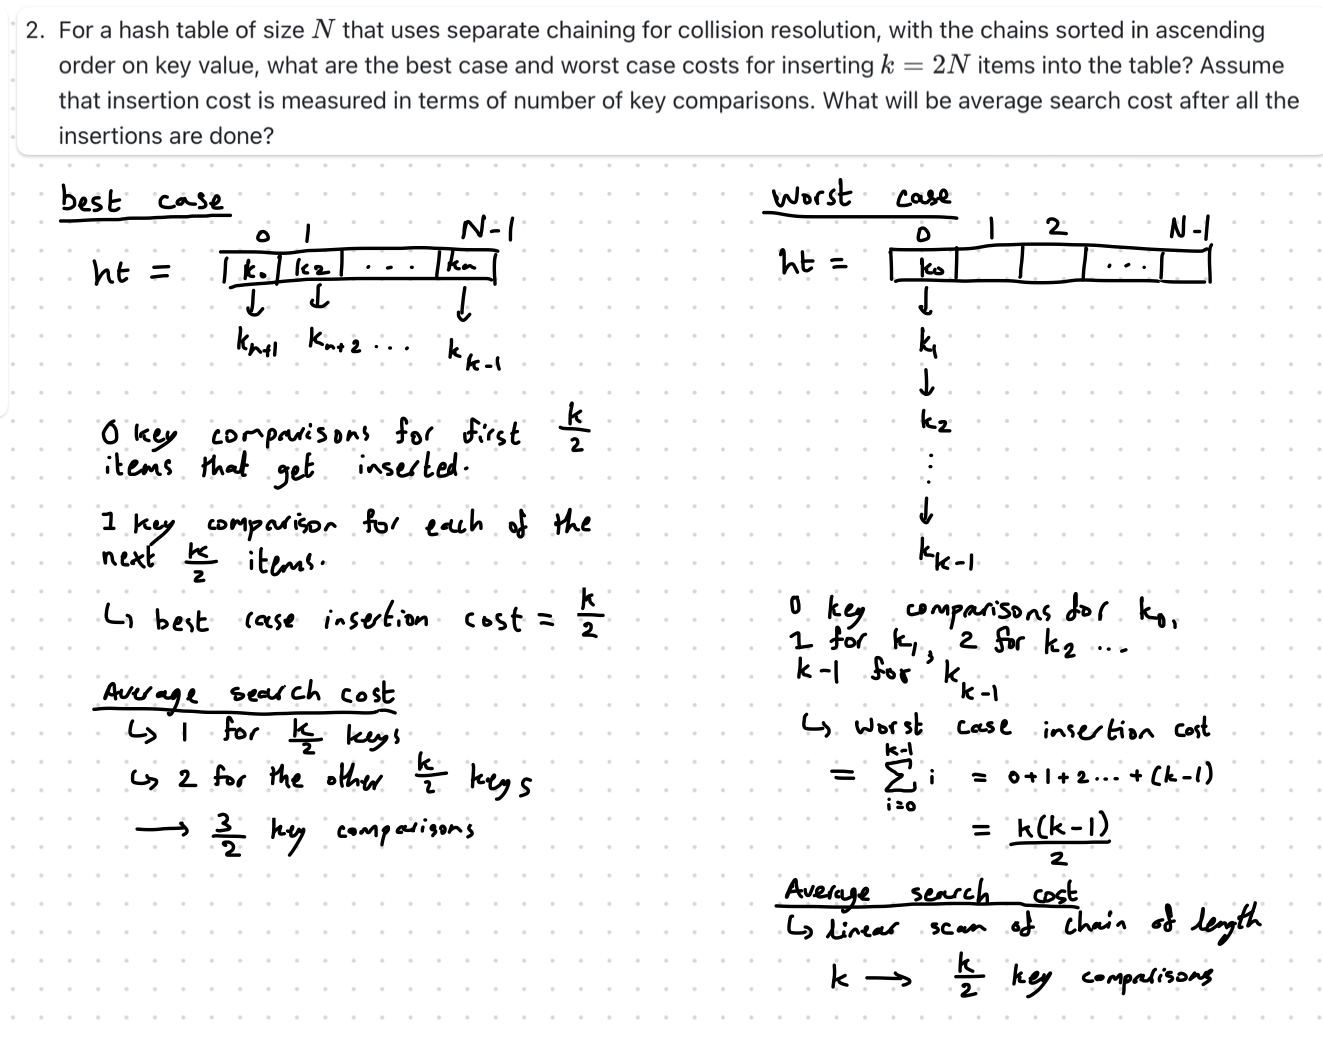 2. For a hash table of size N that uses separate chaining for collision resolution, with the chains sorted in ascending
order on key value, what are the best case and worst case costs for inserting k = 2N items into the table? Assume
that insertion cost is measured in terms of number of key comparisons. What will be average search cost after all the
insertions are done?
best case
0 1 N-1
ht = k₀ k₂ ... kₙ
↓ ↓ ↓
kₙ₊₁ kₙ₊₂ ... kₖ₋₁
0 key comparisons for first k/2
items that get inserted.
1 key comparison for each of the
next k/2 items.
↳ best case insertion cost = k/2
Average search cost
↳ 1 for k/2 keys
↳ 2 for the other k/2 keys
→ 3/2 key comparisons
Worst case
0 1 2 N-1
ht = k₀ ...
↓
k₁
↓
k₂
⋮
↓
kₖ₋₁
0 key comparisons for k₀,
1 for k₁, 2 for k₂ ...
k-1 for kₖ₋₁
↳ worst case insertion cost
= Σ_{i=0}^{k-1} i = 0+1+2...+(k-1)
= k(k-1)/2
Average search cost
↳ linear scan of chain of length
k → k/2 key comparisons